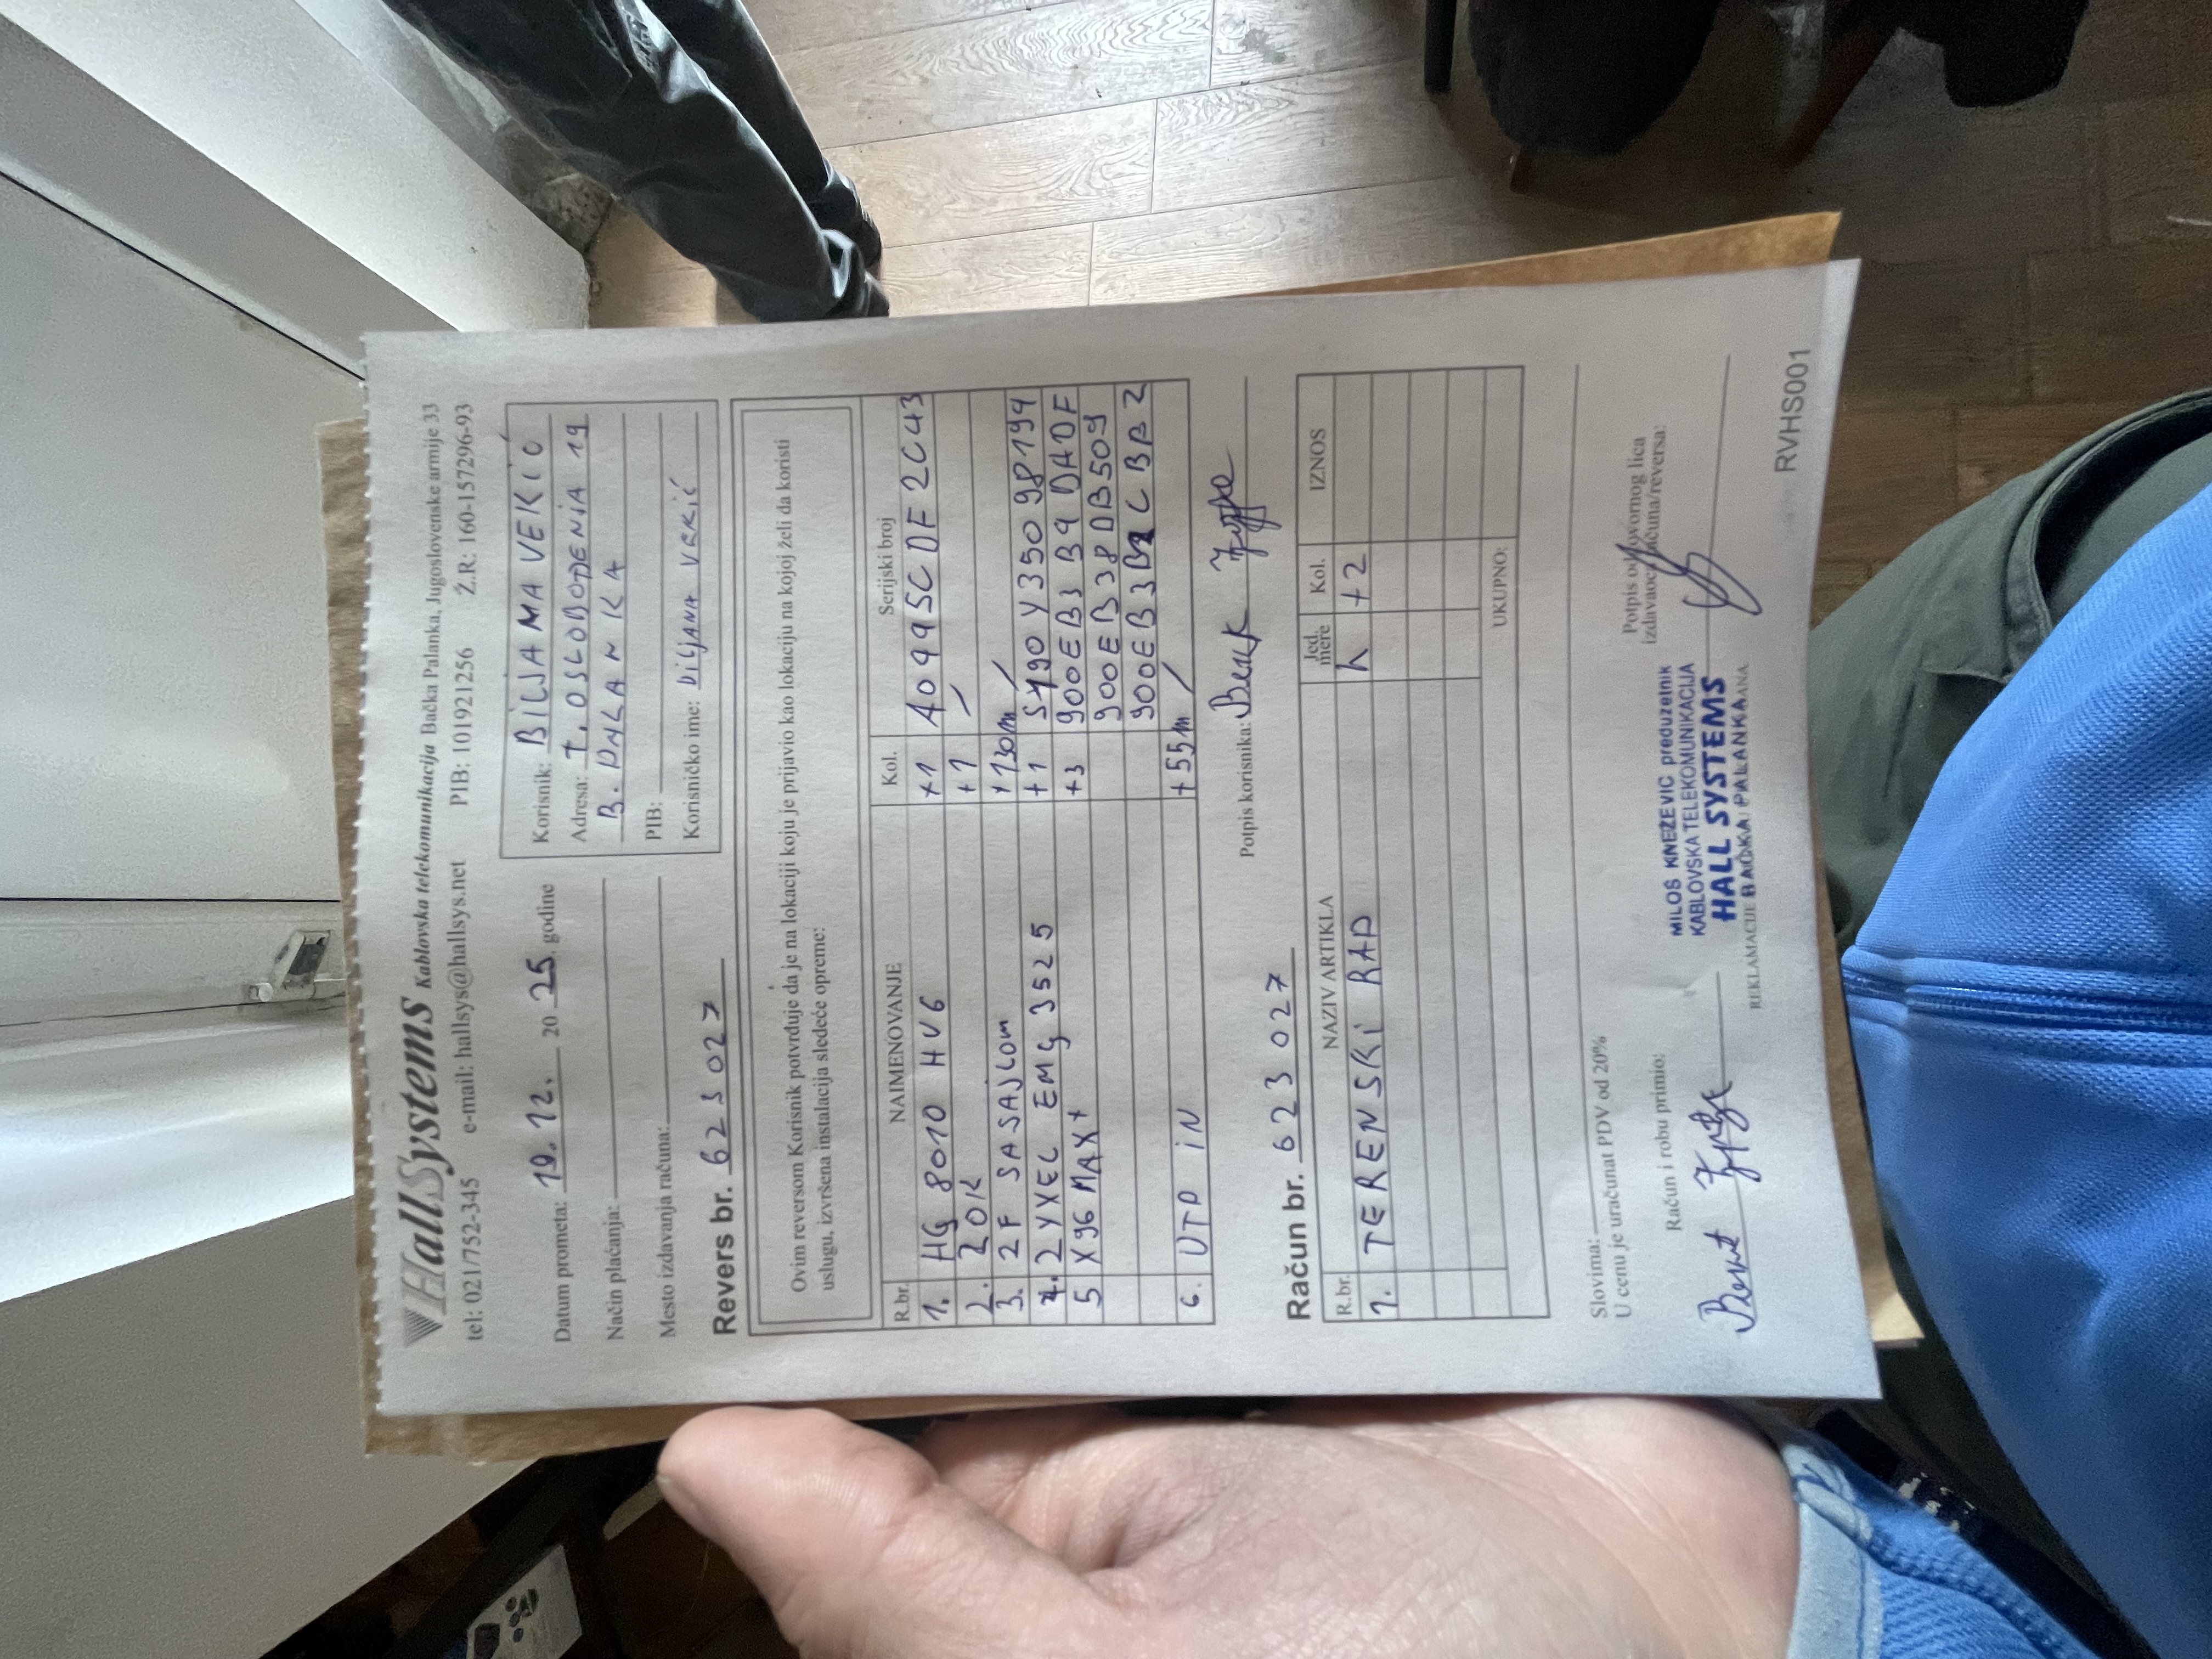 HallSystems Kablovska telekomunikacija Bačka Palanka, Jugoslovenske armije 33
tel: 021/752-345 e-mail: hallsys@hallsys.net PIB: 101921256 Ž.R: 160-157296-93
Datum prometa: 19.12. 20 25. godine
Način plaćanja:
Mesto izdavanja računa:
Korisnik: BILJAMA VEKIĆ
Adresa: T. OSLOBOĐENJA 19
B. PALANKA
PIB:
Korisničko ime:
Revers br. 623 027
Ovim reversom Korisnik potvrđuje da je na lokaciji koju je prijavio kao lokaciju na kojoj želi da koristi
uslugu, izvršena instalacija sledeće opreme:
R.br. NAIMENOVANJE Kol. Serijski broj
1. HG 8010 HV6 +1 4099SCDF2C43
2. ZOK +1 /
3. 2F SA SAJLOM +130m /
4. ZYXEL EMG 3525 +1 S490Y35098194
5 X96 MAX+ +3 900EB3B9DADF
900EB38DB509
900EB3 CBB2
6. UTP IN +55m /
Potpis korisnika:
Račun br. 623 027
R.br. NAZIV ARTIKLA Jed. mere Kol. IZNOS
1. TERENSKI RAD h +2
UKUPNO:
Slovima:
U cenu je uračunat PDV od 20%
Račun i robu primio:
Potpis odgovornog lica
izdavaoca računa/reversa:
MILOŠ KNEŽEVIĆ preduzetnik
KABLOVSKA TELEKOMUNIKACIJA
HALL SYSTEMS
BAČKA PALANKA
REKLAMACIJE
RVHS001